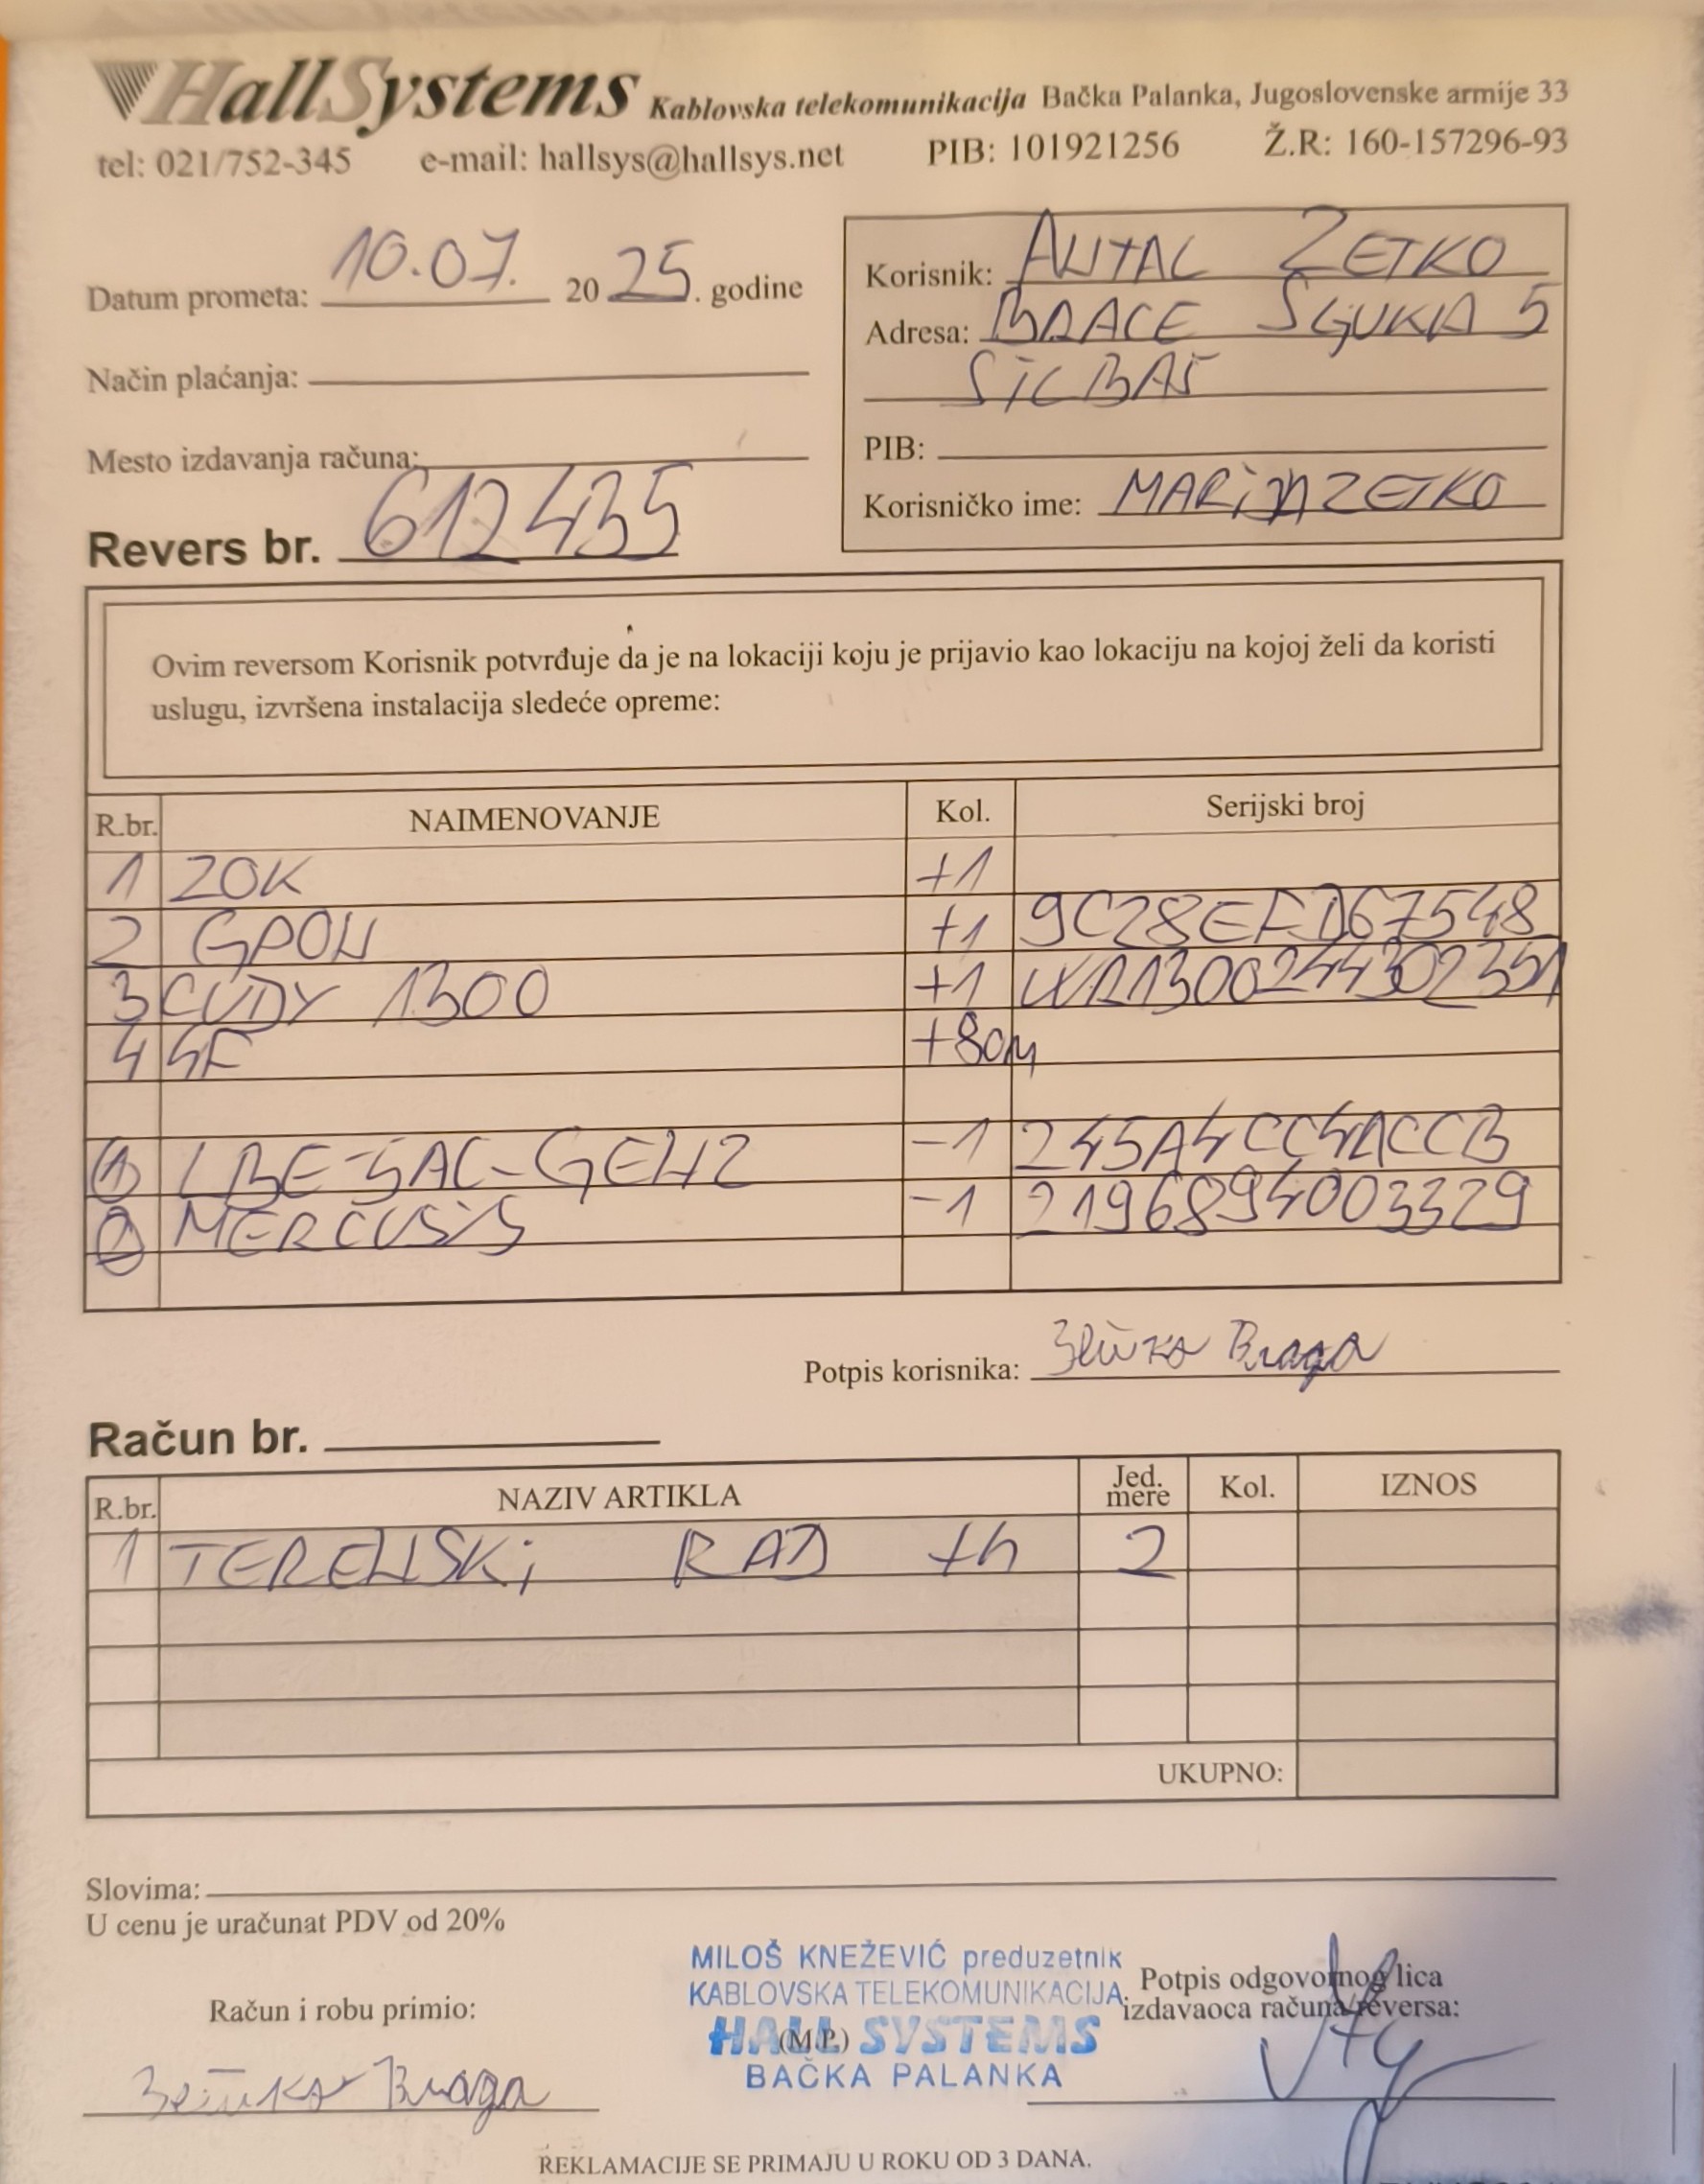 HallSystems Kablovska telekomunikacija Bačka Palanka, Jugoslovenske armije 33
tel: 021/752-345 e-mail: hallsys@hallsys.net PIB: 101921256 Ž.R: 160-157296-93
Datum prometa: 10.07. 2025. godine
Način plaćanja:
Mesto izdavanja računa:
Revers br. 612435
Korisnik: ANTAL ZETKO
Adresa: BRACE SLJUKIA 5
SILBAŠ
PIB:
Korisničko ime: MARINZETKO
Ovim reversom Korisnik potvrđuje da je na lokaciji koju je prijavio kao lokaciju na kojoj želi da koristi
uslugu, izvršena instalacija sledeće opreme:
R.br. NAIMENOVANJE Kol. Serijski broj
1 ZOK +1
2 GPON +1 9C28EFD67548
3 CUDY 1300 +1 WR1300244302351
4 SF +80m
1 LBE-5AC-GEN2 -1 245A4CC4ACCB
2 MERCUSYS -1 2196894003329
Potpis korisnika:
Račun br.
R.br. NAZIV ARTIKLA Jed. mere Kol. IZNOS
1 TERENSKI RAD +h 2
UKUPNO:
Slovima:
U cenu je uračunat PDV od 20%
Račun i robu primio:
MILOŠ KNEŽEVIĆ preduzetnik
KABLOVSKA TELEKOMUNIKACIJA
HALL SYSTEMS
(M.P.)
BAČKA PALANKA
Potpis odgovornog lica
izdavaoca računa/reversa:
REKLAMACIJE SE PRIMAJU U ROKU OD 3 DANA.